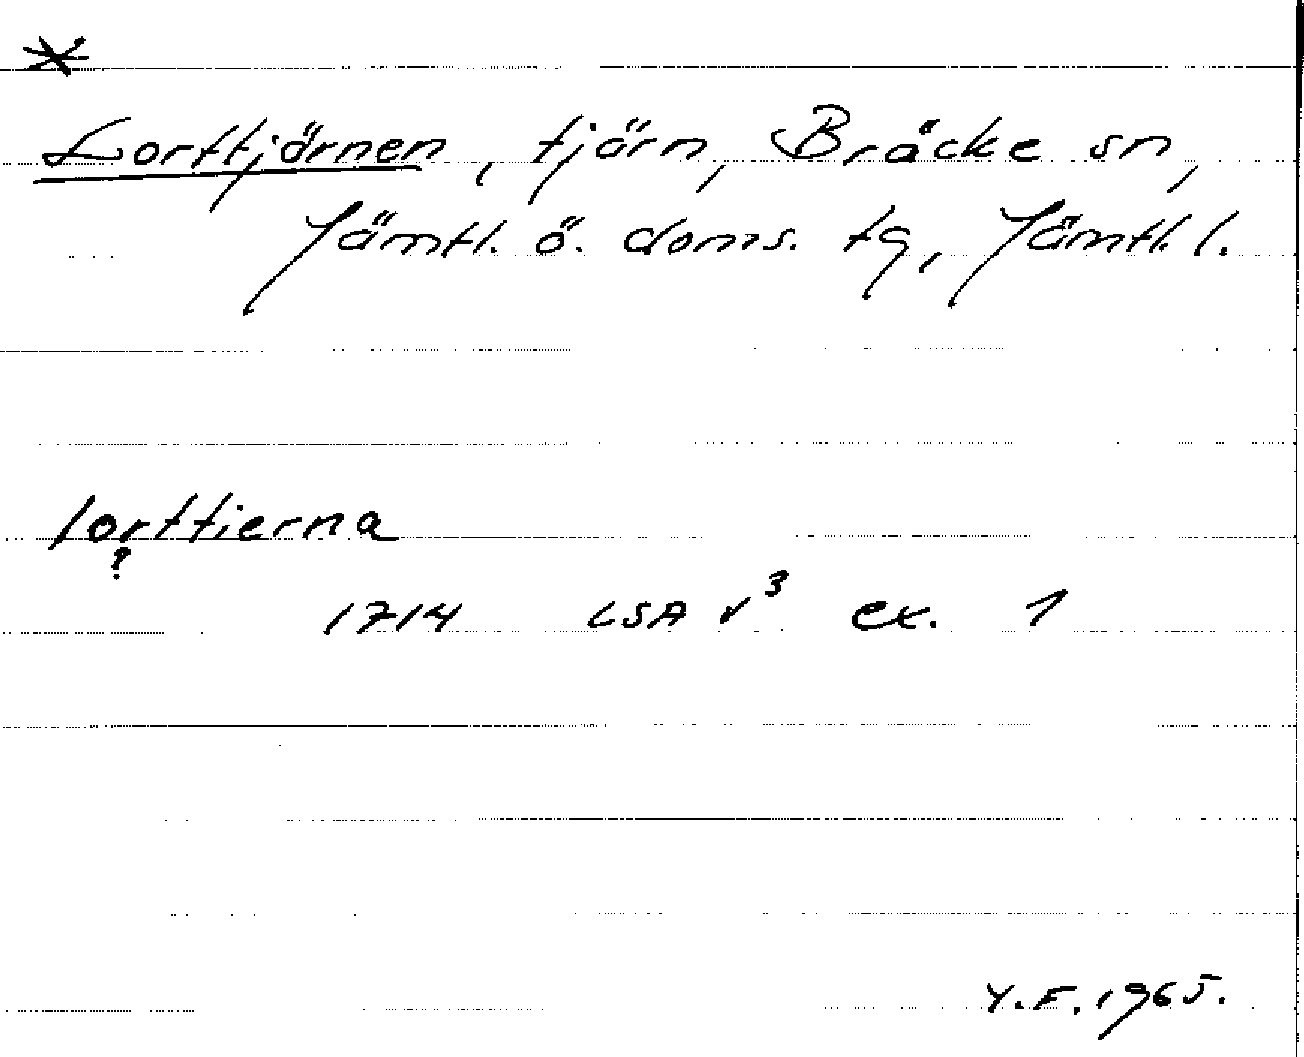 *
Lorttjärnen, tjärn, Bräcke sn,
Jämtl. ö. doms. tg, Jämtl. l.
lorttierna
?
1714 LSA v³ ex. 1
Y.F. 1965.